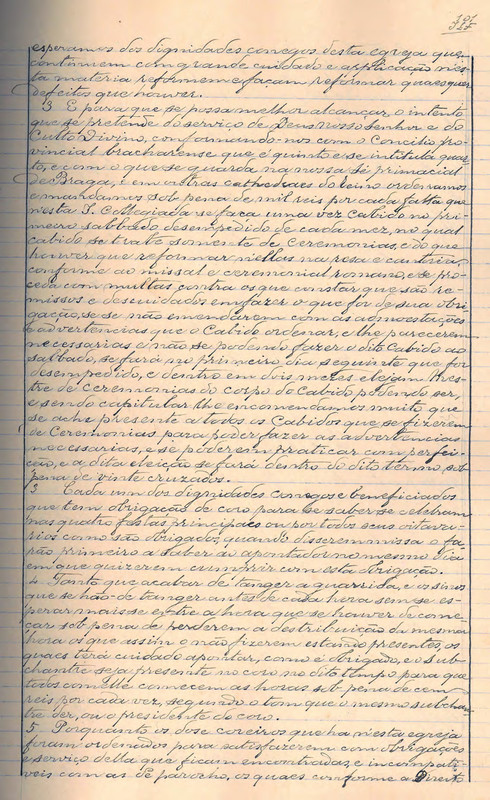 esperamos dos dignidades conegos desta egreja que
continuem com grande cuidado e applicação nes-
ta materia reformem e façam reformar quaesquer
defeitos que houver.
3 E para que se possa melhor alcançar, o intento
que se pretende do serviço de Deus nosso Senhor e do
Culto Divino, conformando-nos com o Concilio pro-
vincial bracharense que é quinto e se intitula quar-
to, e com o que se guarda na nossa Sé primacial
de Braga, e em outras cathedraes do reino ordenamos
e mandamos sob pena de mil reis por cada falta que
n'esta I. Collegiada se faça uma vez Cabido no pri-
meiro sabbado desempedido de cada mez, no qual
cabido se trate somente de Ceremonias, e do que
houver que reformar n'ellas na resa e cantoria,
conforme ao missal e ceremonial romano, e se pro-
ceda com multas contra os que constar que são re-
missos e descuidados em fazer o que fôr de sua obri-
gação, se se não emendarem com as admoestações
e advertencias que o Cabido ordenar, e lhe parecerem
necessarias e não se podendo fazer o dito Cabido ao
sabbado, se fará no primeiro dia seguinte que for
desempedido, e dentro em dois mezes elejam Mes-
tre de Ceremonias do corpo do Cabido podendo ser,
e sendo capitular lhe encomendamos muito que
se ache presente a todos os Cabidos que se fizerem
de Ceremonias para poder fazer as advertencias
necessarias, e se poderem praticar com perfei-
ção, e a dita eleição se fará dentro do dito termo sob
pena de vinte cruzados.
3 Cada um dos dignidades conegos e beneficiados
que tem obrigação de coro para se saber se celebram
nas quatro festas principaes ou por todos seus oitava-
rios como são obrigados, quando disserem missa o fa-
rão primeiro a saber ao apontador no mesmo dia
em que quizerem cumprir com esta obrigação.
4 Tanto que acabar de tanger a guarrida, e os sinos
que se hão de tanger antes de cada hora sem se es-
perar mais se entre a hora que se houver de come-
çar sob pena de perderem a destribuição da mesma
hora os que assim o não fizerem estando presentes, os
quaes terá cuidado apontar, como é obrigado, e o Sub-
chantre seja presente no coro no dito tempo para que
todos com elle comecem as horas sob pena de cem
reis por cada vez, segundo o tom que o mesmo subchan-
tre der, ou o presidente do coro.
5 Porquanto os dose coreiros que ha n'esta egreja
foram ordenados para satisfazerem com obrigações
e serviço della que ficam encontradas, e incompati-
veis com as de parocho, os quaes conforme a Direito